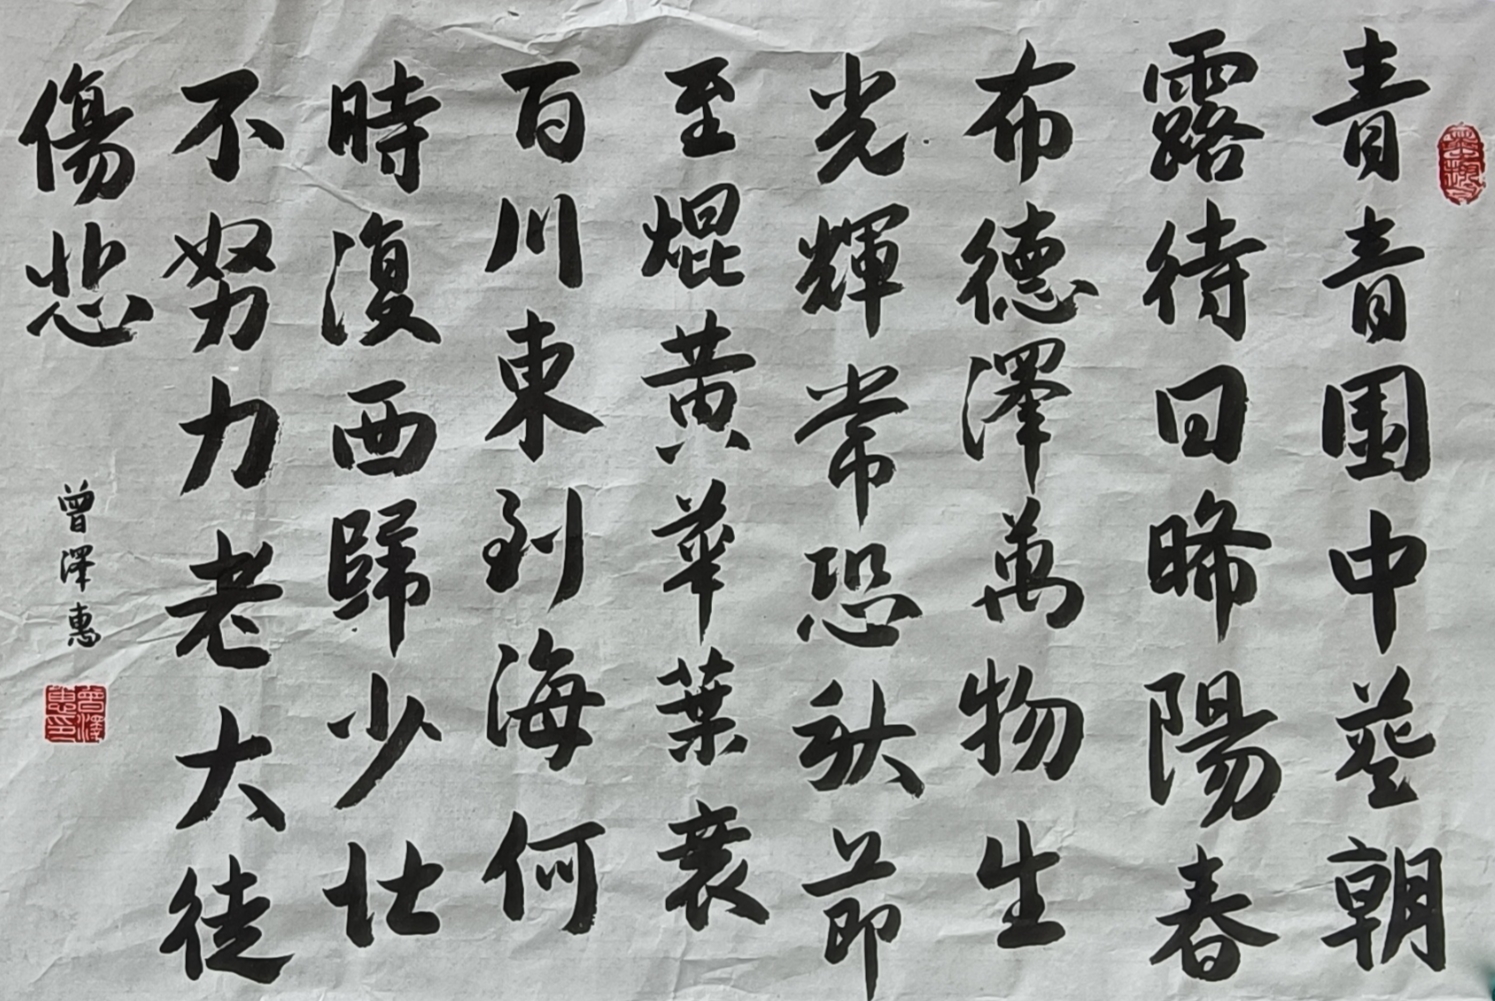 青青園中葵朝
露待日晞陽春
布德澤萬物生
光輝常恐秋節
至焜黃華葉衰
百川東到海何
時復西歸少壯
不努力老大徒
傷悲
曾澤惠
曾澤惠印